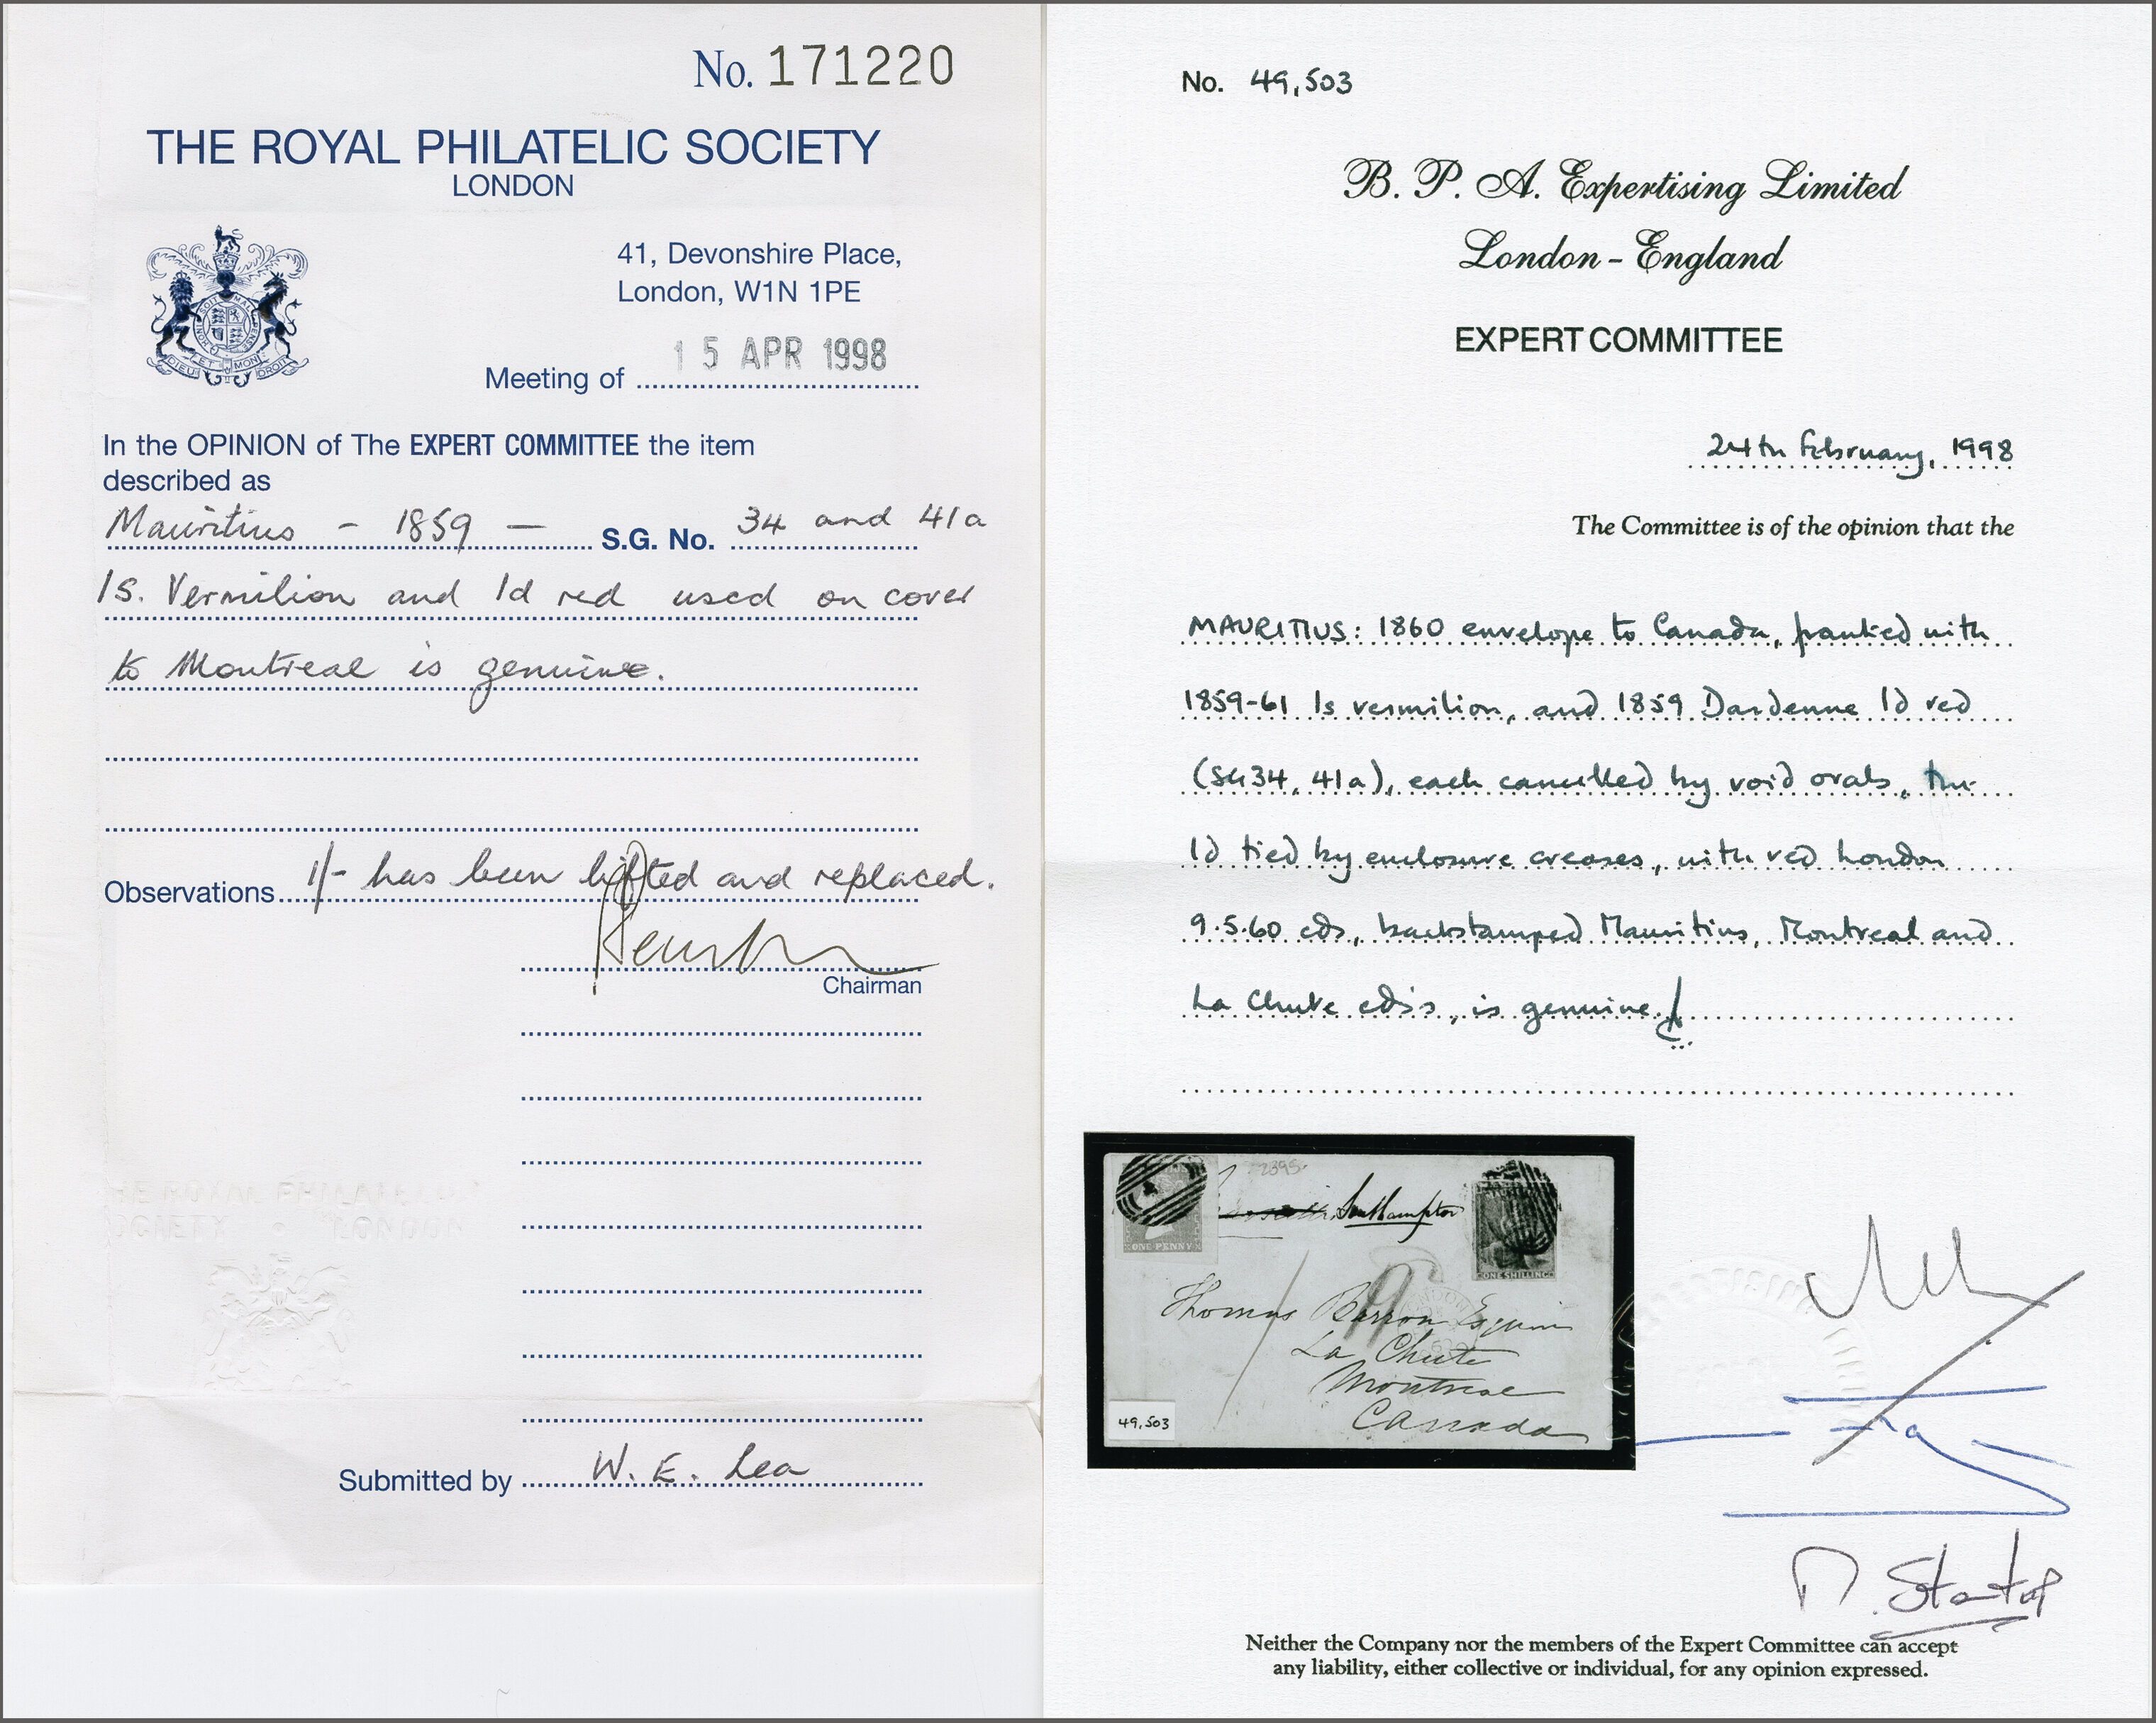 No. 171220
THE ROYAL PHILATELIC SOCIETY
LONDON
41, Devonshire Place,
London, W1N 1PE
Meeting of 15 APR 1998
In the OPINION of The EXPERT COMMITTEE the item
described as
Mauritius - 1859 - S.G. No. 34 and 41a
1s. Vermilion and 1d red used on cover
to Montreal is genuine.
Observations 1/- has been lifted and replaced.
Chairman
THE ROYAL PHILATELIC
SOCIETY LONDON
Submitted by W. E. Lea
No. 49,503
B. P. A. Expertising Limited
London - England
EXPERT COMMITTEE
24th February, 1998
The Committee is of the opinion that the
MAURITIUS: 1860 envelope to Canada, franked with
1859-61 1s vermilion, and 1859 Dardenne 1d red
(SG34, 41a), each cancelled by void ovals, the
1d tied by enclosure creases, with red London
9.5.60 cds, backstamped Mauritius, Montreal and
La Chute cds's, is genuine.
2395
Southampton
ONE PENNY
ONE SHILLING
Thomas Barron Esquire
La Chute
Montreal
Canada
49,503
Neither the Company nor the members of the Expert Committee can accept
any liability, either collective or individual, for any opinion expressed.